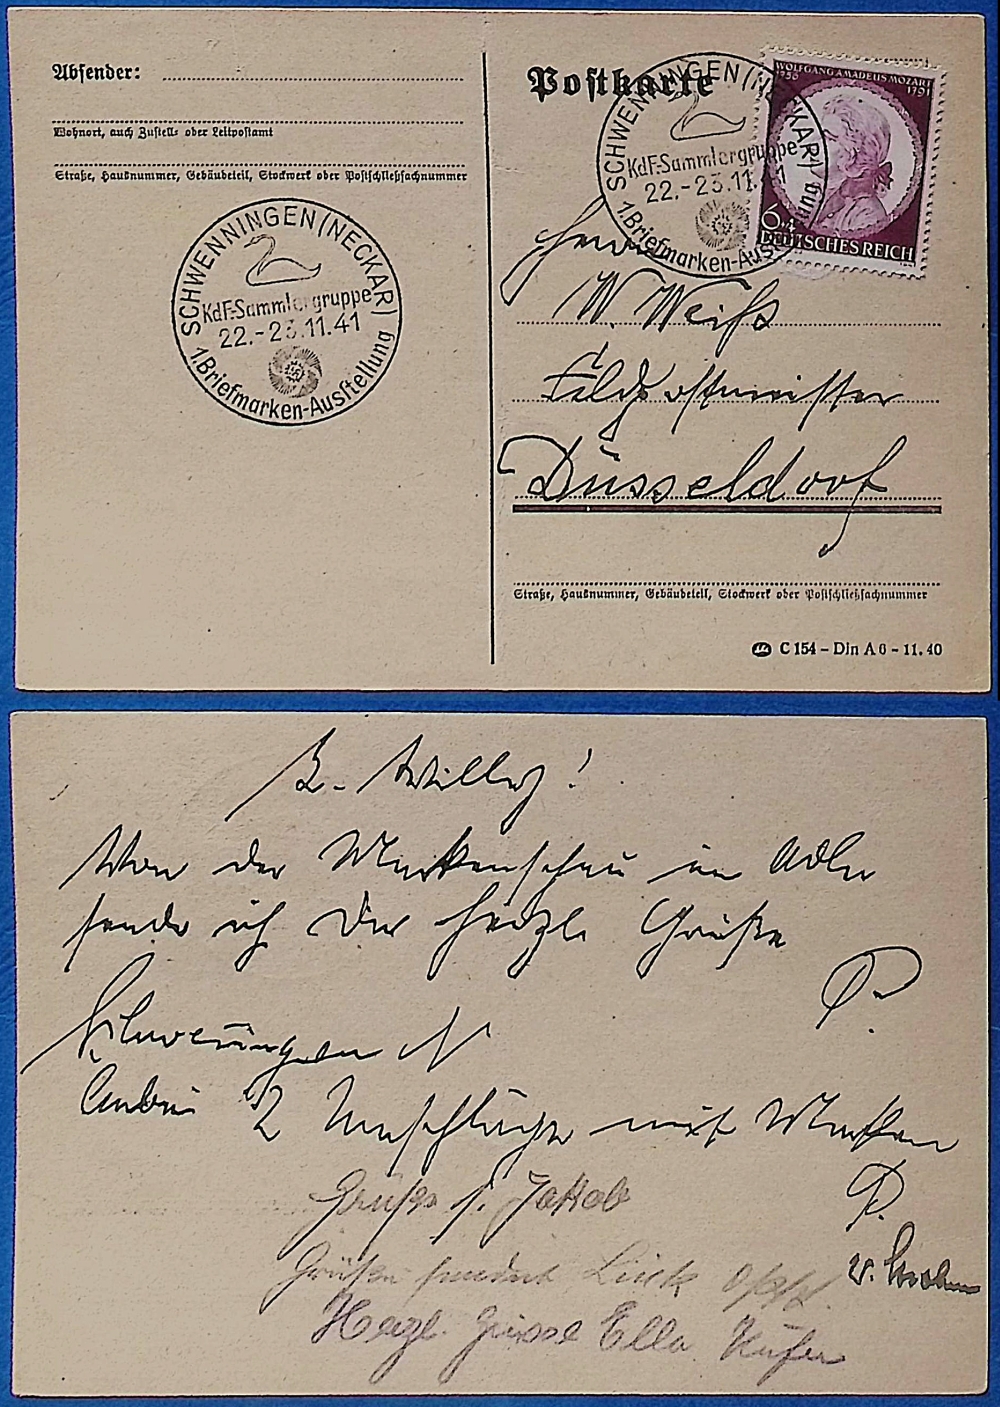 Absender:
Wohnort, auch Zustell- oder Leitpostamt
Straße, Hausnummer, Gebäudeteil, Stockwerk oder Postschließfachnummer
SCHWENNINGEN (NECKAR)
KdF-Sammlergruppe
22.-23.11.41
1. Briefmarken-Ausstellung
Postkarte
SCHWENNINGEN (NECKAR)
KdF-Sammlergruppe
22.-23.11.41
1. Briefmarken-Ausstellung
WOLFGANG AMADEUS MOZART
1756 1791
6+4
DEUTSCHES REICH
Herrn
W. Weiß
Feldpostmeister
Düsseldorf
Straße, Hausnummer, Gebäudeteil, Stockwerk oder Postschließfachnummer
C 154 - Din A 6 - 11. 40
L. Willy!
Von der Markenschau im Adler
sende ich Dir herzl. Grüße
P.
Schwenningen N
Anbei 2 Umschläge mit Marken
P.
Gruß s. Jakob
Grüße sendet
Herzl. Grüsse Ella